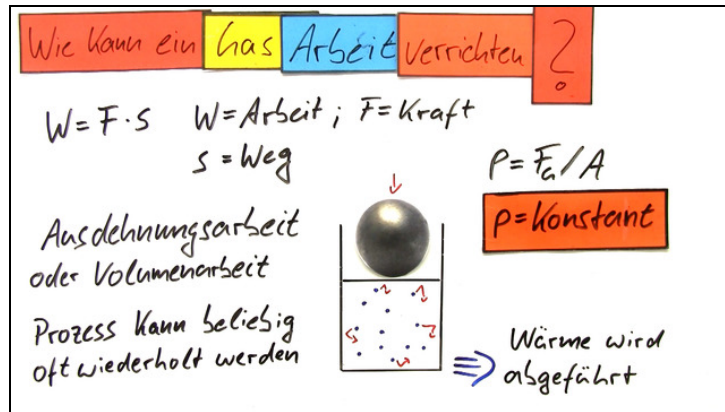 Wie kann ein Gas Arbeit verrichten?
W = F · s W = Arbeit ; F = Kraft
s = Weg
p = Fa / A
p = Konstant
Ausdehnungsarbeit
oder Volumenarbeit
Prozess kann beliebig
oft wiederholt werden
Wärme wird
abgeführt